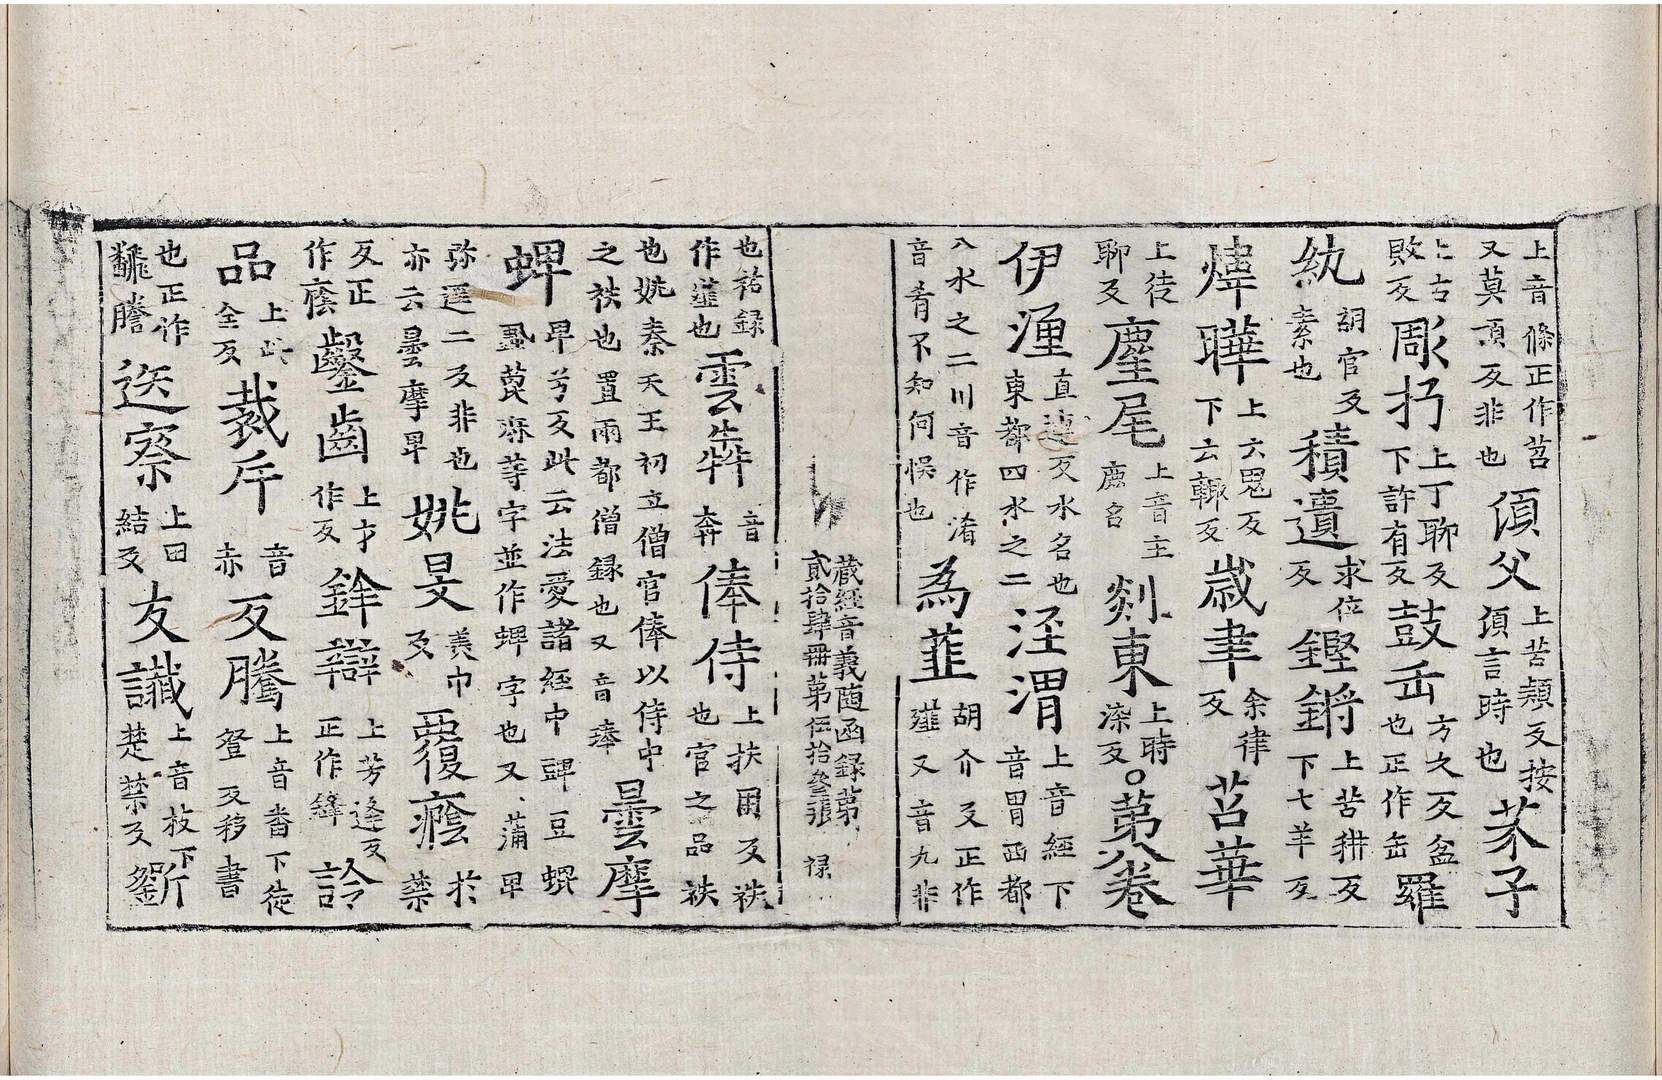 上音條正作苕
又莫頂反非也 傾父 上苦頴反按頂言時也 芥子
上古
敗反 彫扚 上丁聊反下許有反 鼓缶 方久反盆也正作缶 羅
紈 胡官反素也 積遺 求位反 鏗鏘 上苦耕反下七羊反
煒曄 上云鬼反下云輙反 歲聿 余律反 苕華
上徒
聊反 麈尾 上音主鹿名 剡東 上時染反 ○第八卷
伊湹 直連反水名也東都四水之二 涇渭 上音經下音胃西都
八水之二川音作淆
音肴不知何悮也 為薤 胡介反正作䪥又音九非
藏經音義随函録第
貳拾肆冊第伍拾叄張 禄
也祐録
作䪥也 雲犇 音奔 俸侍 上扶用反袟也官之品袟
也姚秦天王初立僧官俸以侍中
之袟也置兩都僧録也又音捧 曇摩
蜱 卑兮反此云法愛諸經中豍豆蜫蝨萞麻䓁字並作蜱字也又蒲卑
弥遥二反非也
亦云曇摩卑 姚旻 美巾反 覆癊 於禁
反正
作蔭 鑿齒 上才作反 鋒辯 上芳逢反正作鋒 詅
品 上此全反 裁斥 音赤 反騰 上音畨下徒登反移書
也正作
謄 迭察 上田結反 友讖 上音枝下楚禁反 劉